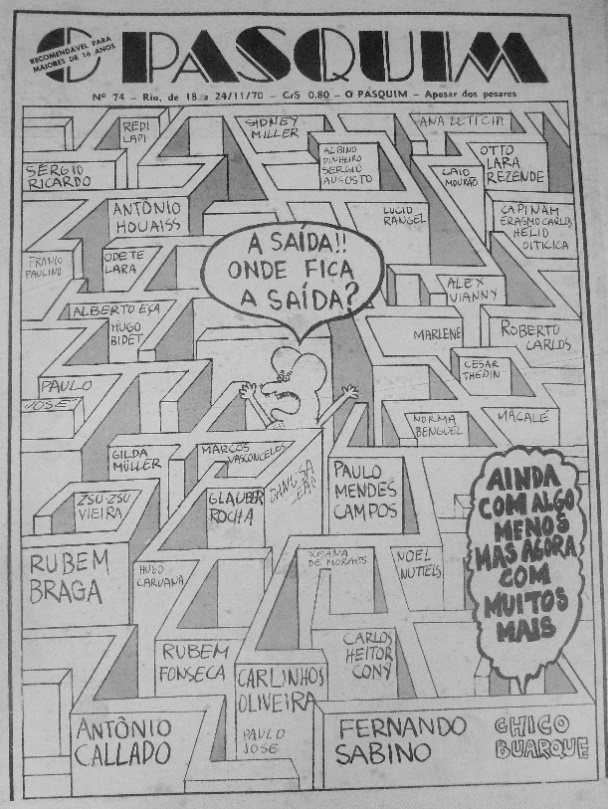 RECOMENDÁVEL PARA
MAIORES DE 16 ANOS
O PASQUIM
Nº 74 — Rio, de 18 a 24/11/70 — Cr$ 0,80 — O PASQUIM — Apesar dos pesares
REDI
LAPI
SIDNEY
MILLER
ANA LETICIA
SÉRGIO
RICARDO
ALBINO
PINHEIRO
SERGIO
AUGUSTO
CAIO
MOURÃO
OTTO
LARA
REZENDE
ANTÔNIO
HOUAISS
LUCIO
RANGEL
CAPINAM
ERASMO CARLOS
HELIO
OITICICA
FRANCO
PAULINO
ODETE
LARA
A SAÍDA!!
ONDE FICA
A SAÍDA?
ALEX
VIANNY
ALBERTO EÇA
HUGO
BIDET
MARLENE
ROBERTO
CARLOS
PAULO
JOSÉ
CESAR
THEDIN
NORMA
BENGUEL
MACALÉ
GILDA
MÜLLER
MARCOS
VASCONCELOS
DANUSA
LEÃO
PAULO
MENDES
CAMPOS
ZSU-ZSU
VIEIRA
GLAUBER
ROCHA
AINDA
COM ALGO
MENOS
MAS AGORA
COM
MUITOS
MAIS
RUBEM
BRAGA
HUGO
CARVANA
SUSANA
DE MORAES
NOEL
NUTTELS
RUBEM
FONSECA
CARLINHOS
OLIVEIRA
CARLOS
HEITOR
CONY
ANTÔNIO
CALLADO
PAULO
JOSÉ
FERNANDO
SABINO
CHICO
BUARQUE